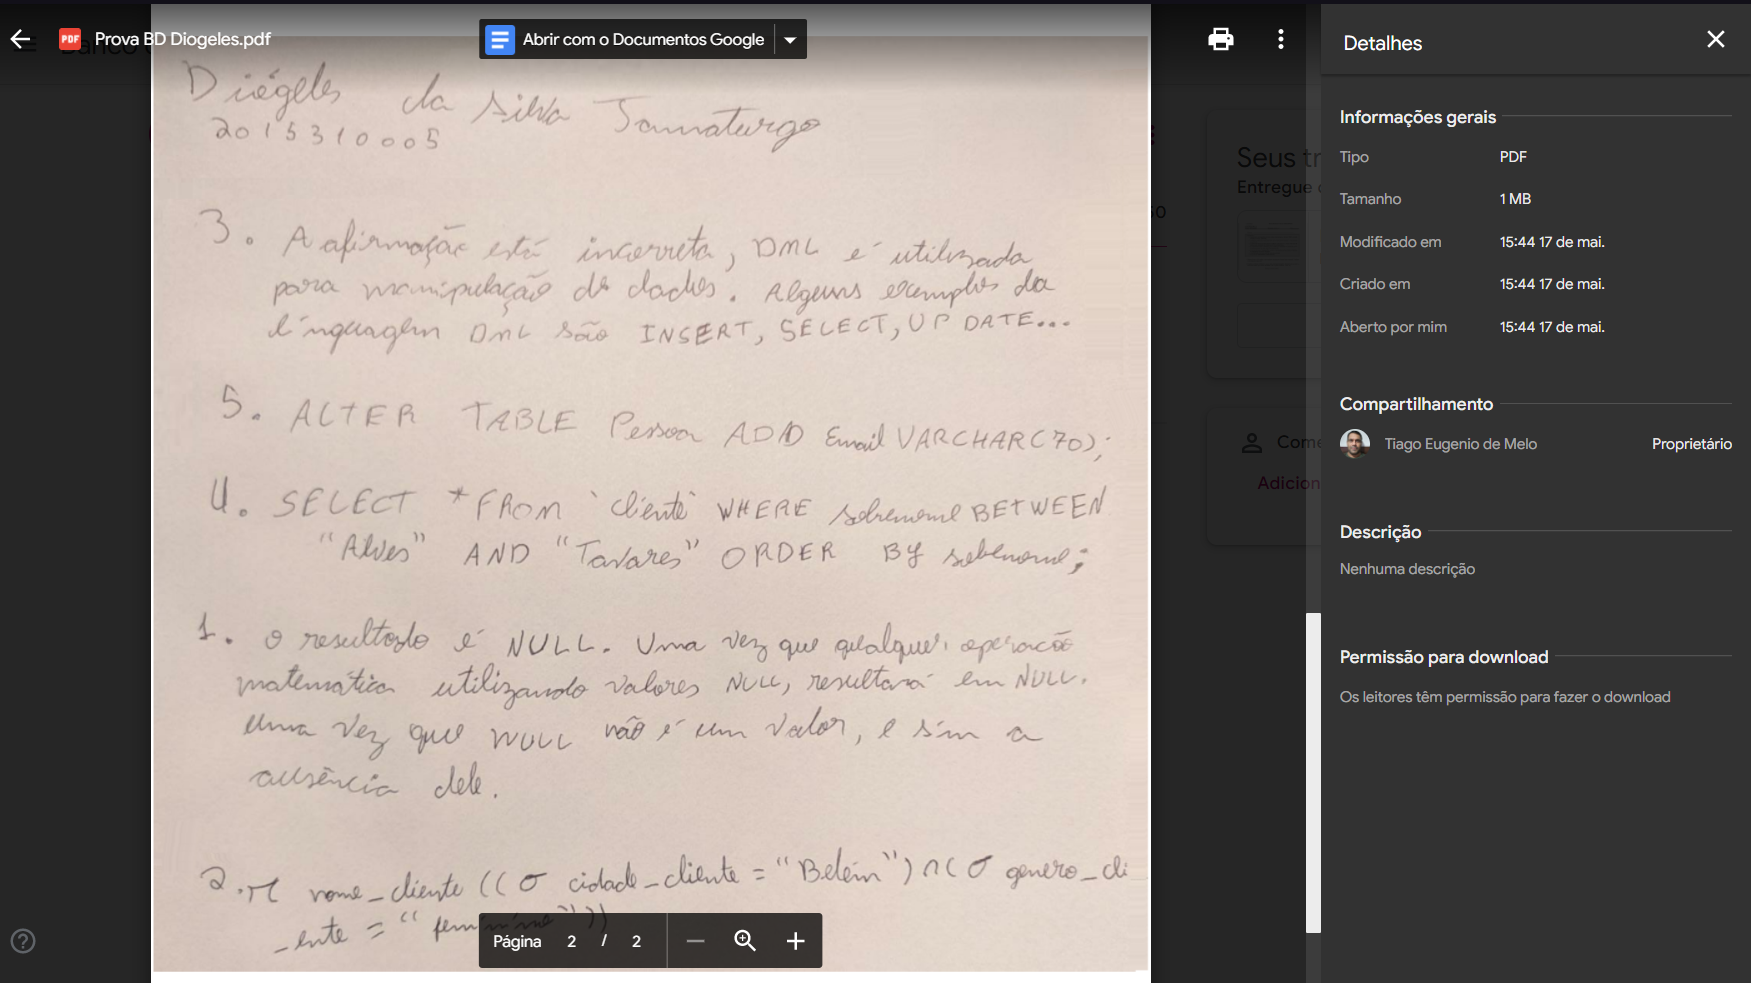 Prova BD Diogeles.pdf
Abrir com o Documentos Google
Diógeles da Silva Tamaturgo
2015310005
3. A afirmação está incorreta, DML é utilizada
para manipulação de dados. Alguns exemplos da
linguagem DML são INSERT, SELECT, UPDATE...
5. ALTER TABLE Pessoa ADD Email VARCHAR(70);
4. SELECT * FROM `cliente` WHERE sobrenome BETWEEN
"Alves" AND "Tavares" ORDER BY sobrenome;
1. O resultado é NULL. Uma vez que qualquer operação
matemática utilizando valores NULL, resultará em NULL.
uma vez que NULL não é um valor, e sim a
ausência dele.
2. π nome_cliente ((σ cidade_cliente = "Belém") ∩ (σ genero_cli
_ente = "feminino"))
Página 2 / 2
Seus tr
Entregue
Come
Adicion
Detalhes
Informações gerais
Tipo PDF
Tamanho 1 MB
Modificado em 15:44 17 de mai.
Criado em 15:44 17 de mai.
Aberto por mim 15:44 17 de mai.
Compartilhamento
Tiago Eugenio de Melo Proprietário
Descrição
Nenhuma descrição
Permissão para download
Os leitores têm permissão para fazer o download